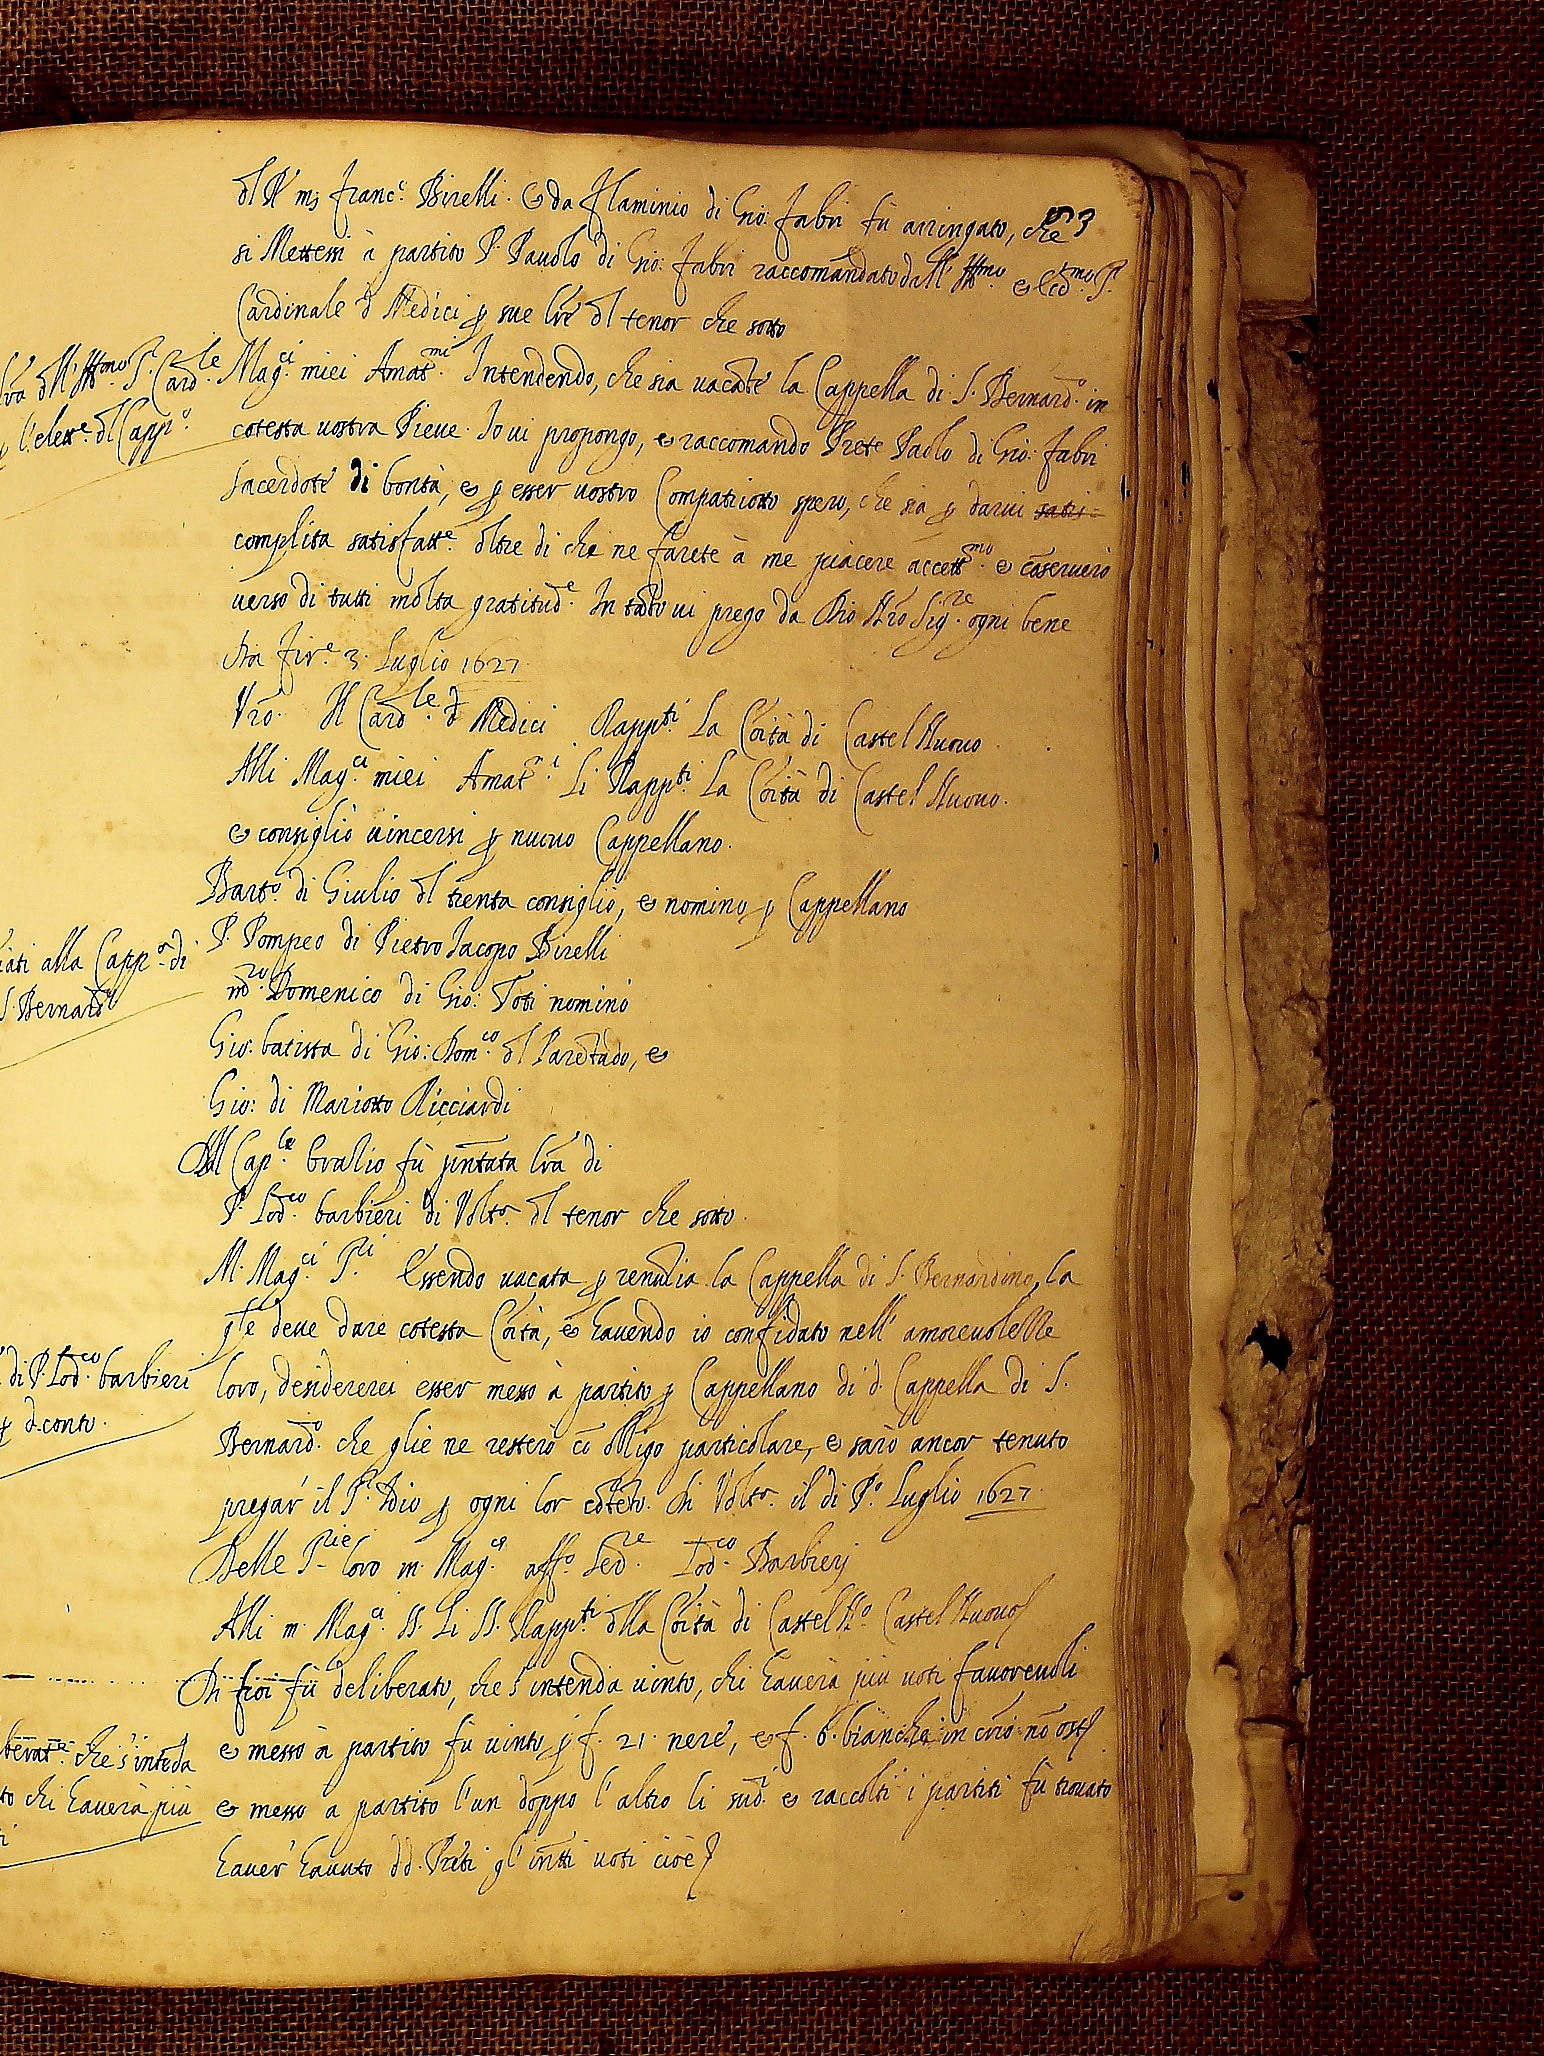 53
dl R. ms franc.º Birelli. & da flaminio di Gio: fabri fù arringato, che
si Mettessi à partito P. Pauolo di Gio: fabri raccomãndato dall' Ill.mo & Rev.mo S.
Cardinale d Medici p sue lrẽ dl tenor che sotto
lrã dll' Ill.mo S. Card.le
l'elett.e dl Capp.º
Mag.ci miei Amat.mi Intendendo, che sia uacãte la Cappella di S. Bernard.º in
cotesta uostra Pieue. Io ui propongo, e raccomando Prete Paolo di Gio: fabri
sacerdote di bontà, e p esser uostro Compatriotto spero, che sia p darui satis=
complita satisfatt.e oltre di che ne farete à me piacere accett.mo e cõseruerò
uerso di tutti molta gratitud.e In tãto ui prego da Dio Nrõ Sig.re ogni bene
Di Fir.e 3. Luglio 1627.
Vrõ. Il Card.le d Medici Rapp.ti La Cõità di Castel Nuouo
Alli Mag.ci miei Amat.i Li Rapp.ti La Cõità di Castel Nuouo.
& consigliò uincersi p nuouo Cappellano.
Bart.º di Giulio dl trenta consigliò, e nominò p Cappellano
P. Pompeo di Pietro Iacopo Birelli
alla Capp.a di
S. Bernard.º
m.ro Domenico di Gio: Toti nominò
Gio: batista di Gio: Dom.co dl Parẽtado, e
Gio: di Mariotto Ricciardi
Dal Cap.le Eralio fù pñtata lrã di
P. Lod.co barbieri di Volt.ª dl tenor che sotto
M. Mag.ci S.ri Essendo uacata p renũtia la Cappella di S. Bernardino, la
qle deue dare cotesta Cõità, e hauendo io confidato nell' amoreuolezze
di P. Lod.co barbieri
d. conto.
loro, desidererei esser messo à partito p Cappellano di d. Cappella di S.
Bernard.º che glie ne resterò cõ obligo particolare, e sarò ancor tenuto
pregar' il S. Dio p ogni lor cõtẽto. Di Volt.ª il dì P.º Luglio 1627.
Delle S.rie loro m. Mag.ce aff.º Ser.re Lod.co Barbierj
Alli m. Mag.ci SS. Li SS. Rapp.ti dlla Cõità di Castel N.º Castel Nuouo
Di poi fù deliberato, che s'intenda uinto, chi hauerà più uoti fauoreuoli
e messo à partito fù uinto p f. 21. nere, e f. 6. bianche in crio nõ ostª
che s'intẽda
chi hauerà più
e messo a partito l'un doppo l'altro li sud.i e raccolti i partiti fù trouato
hauer' hauuto dd. Preti gl'infri uoti cioè